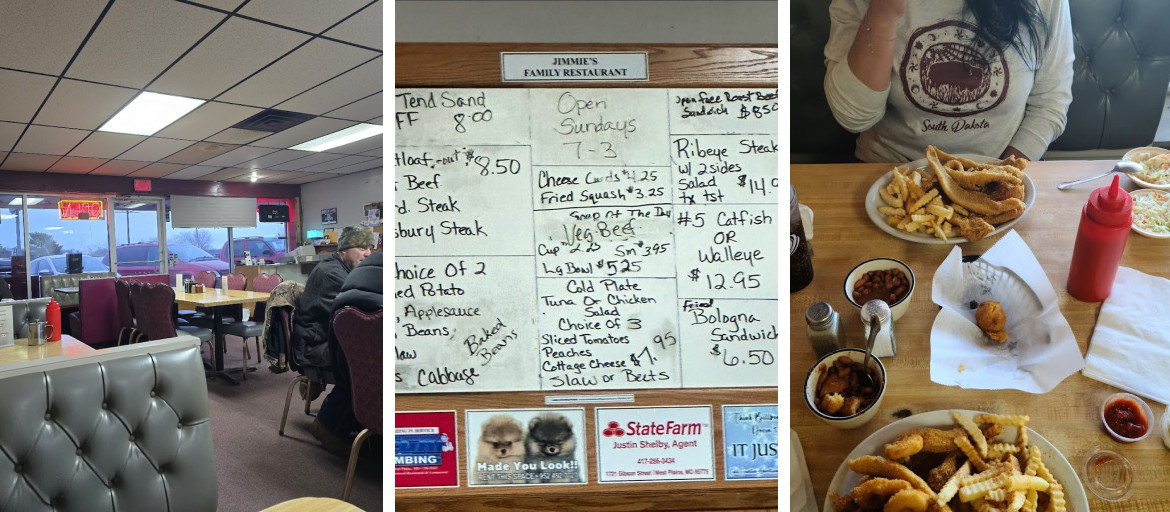 JIMMIE'S
FAMILY RESTAURANT
Tend Sand
FF 8.00
tloaf, $8.50
Beef
d. Steak
sbury Steak
hoice Of 2
ed Potato
Applesauce
Beans
Baked
Beans
law
s Cabbage
Open
Sundays
7-3
Cheese Curds $4.25
Fried Squash $3.25
Soup Of The Day
Veg Beef
Cup 2.25 Sm $3.95
Lg Bowl $5.25
Cold Plate
Tuna Or Chicken
Salad
Choice Of 3
Sliced Tomatoes
Peaches
Cottage Cheese $7.95
Slaw or Beets
Open Face Roast Beef
Sandwich $8.50
Ribeye Steak
w/ 2 sides
Salad $14.
tx tst
#5 Catfish
OR
Walleye
$12.95
Fried
Bologna
Sandwich
$6.50
MBING
Made You Look!!
RENT THIS SPACE
StateFarm
Justin Shelby, Agent
417-256-3434
IT JUS
South Dakota